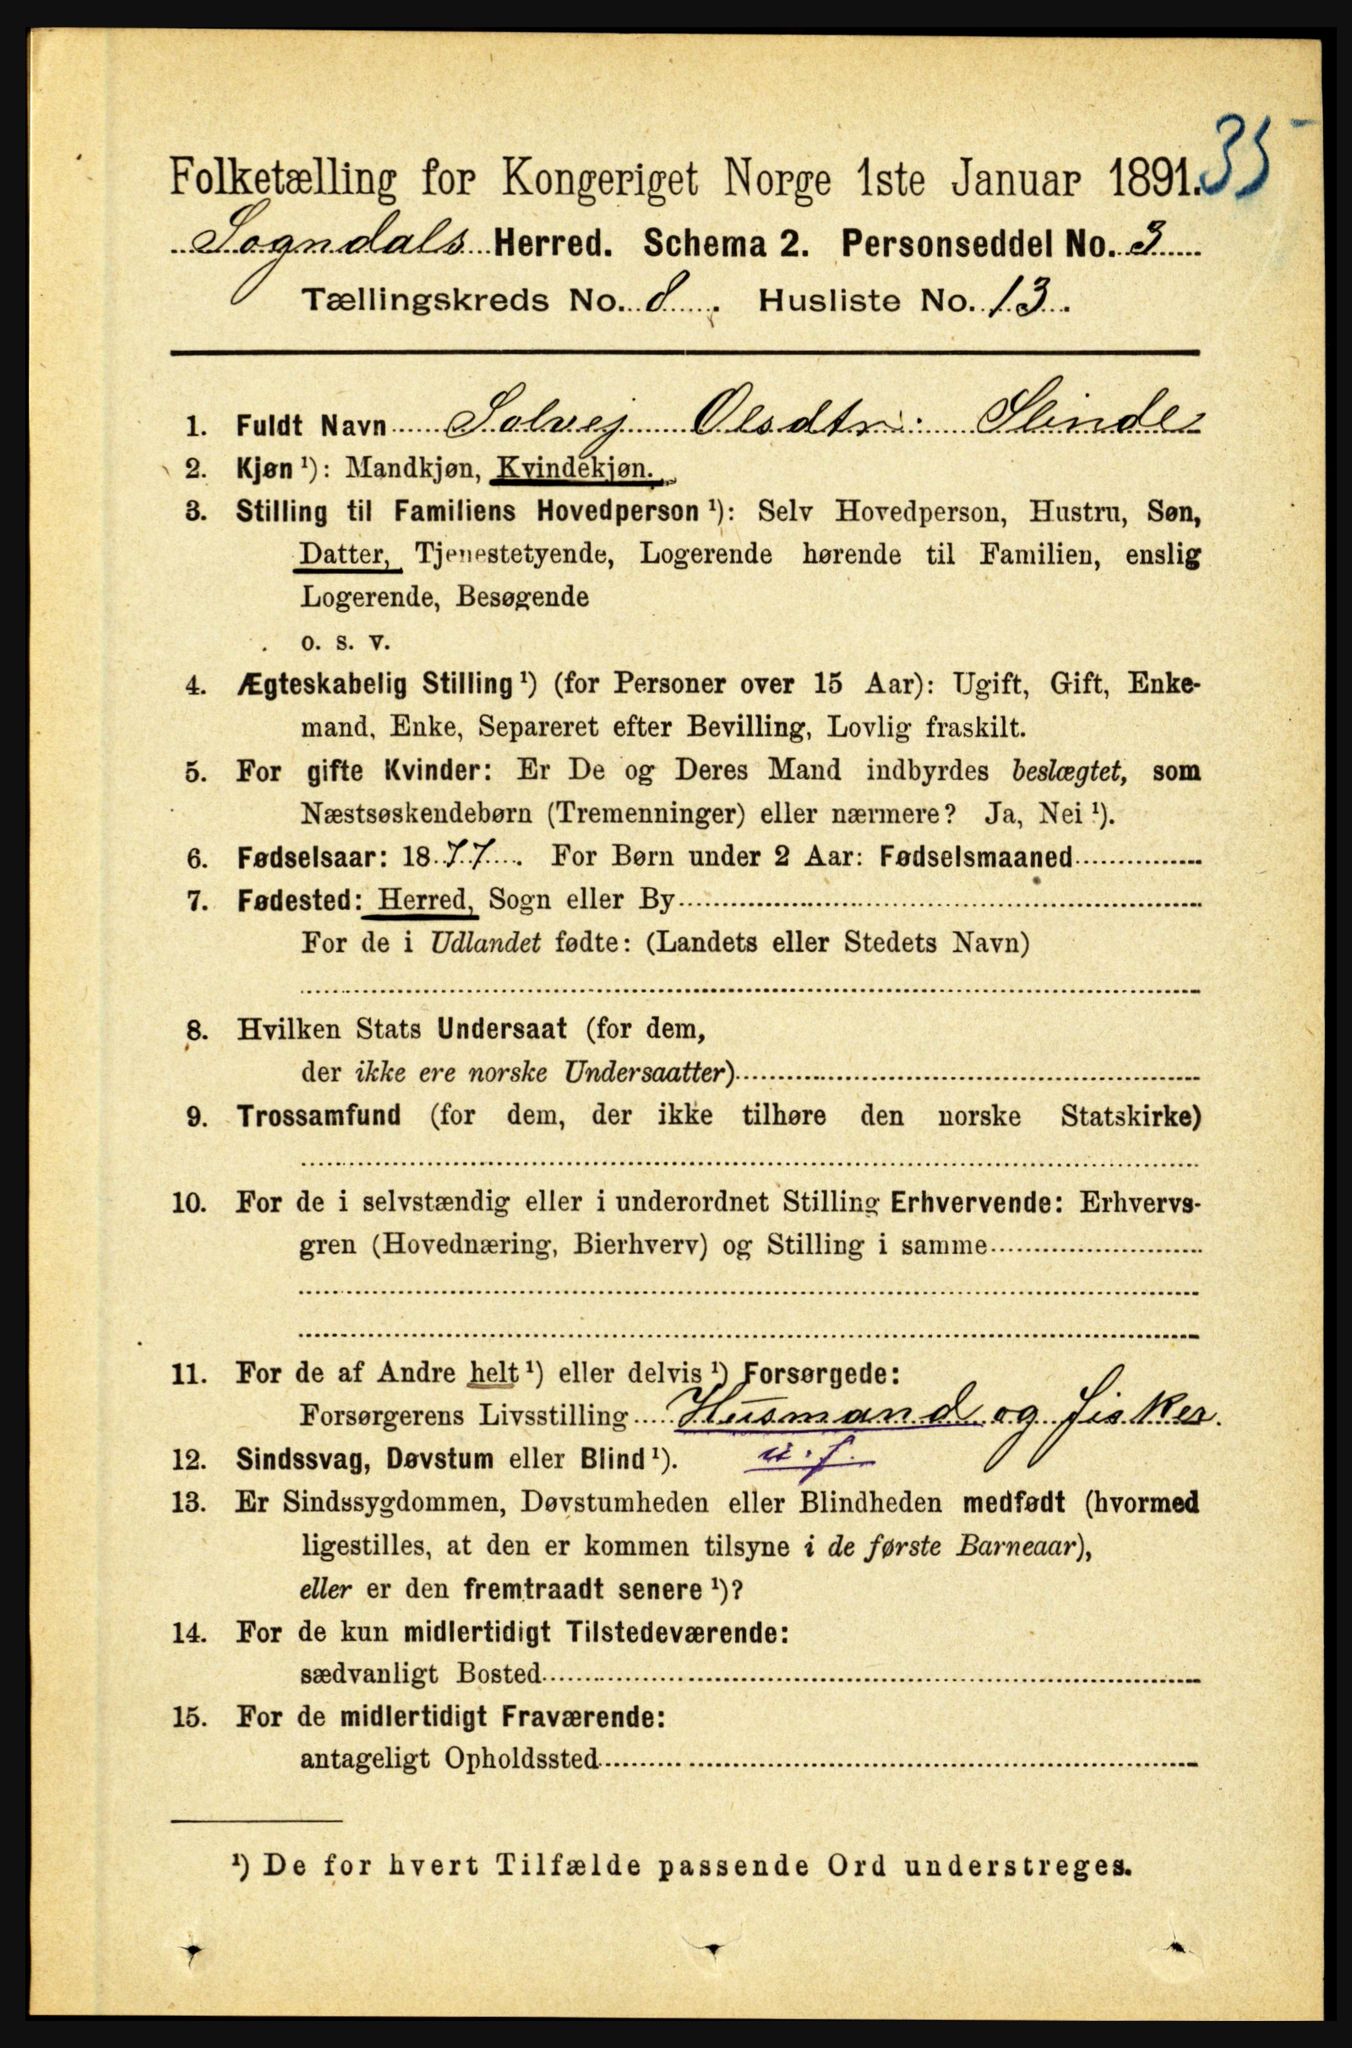 35
Folketælling for Kongeriget Norge 1ste Januar 1891.
Sogndals Herred. Schema 2. Personseddel No. 3
Tællingskreds No. 8. Husliste No. 13.
1. Fuldt Navn Solvej Olsdtr: Slinde
2. Kjøn ¹): Mandkjøn, Kvindekjøn.
3. Stilling til Familiens Hovedperson ¹): Selv Hovedperson, Hustru, Søn,
Datter, Tjenestetyende, Logerende hørende til Familien, enslig
Logerende, Besøgende
o. s. v.
4. Ægteskabelig Stilling ¹) (for Personer over 15 Aar): Ugift, Gift, Enke-
mand, Enke, Separeret efter Bevilling, Lovlig fraskilt.
5. For gifte Kvinder: Er De og Deres Mand indbyrdes beslægtet, som
Næstsøskendebørn (Tremenninger) eller nærmere? Ja, Nei ¹).
6. Fødselsaar: 1877. For Børn under 2 Aar: Fødselsmaaned
7. Fødested: Herred, Sogn eller By
For de i Udlandet fødte: (Landets eller Stedets Navn)
8. Hvilken Stats Undersaat (for dem,
der ikke ere norske Undersaatter)
9. Trossamfund (for dem, der ikke tilhøre den norske Statskirke)
10. For de i selvstændig eller i underordnet Stilling Erhvervende: Erhvervs-
gren (Hovednæring, Bierhverv) og Stilling i samme
11. For de af Andre helt ¹) eller delvis ¹) Forsørgede:
Forsørgerens Livsstilling Husmand og fisker.
12. Sindssvag, Døvstum eller Blind ¹). u.f.
13. Er Sindssygdommen, Døvstumheden eller Blindheden medfødt (hvormed
ligestilles, at den er kommen tilsyne i de første Barneaar),
eller er den fremtraadt senere ¹)?
14. For de kun midlertidigt Tilstedeværende:
sædvanligt Bosted
15. For de midlertidigt Fraværende:
antageligt Opholdssted
¹) De for hvert Tilfælde passende Ord understreges.